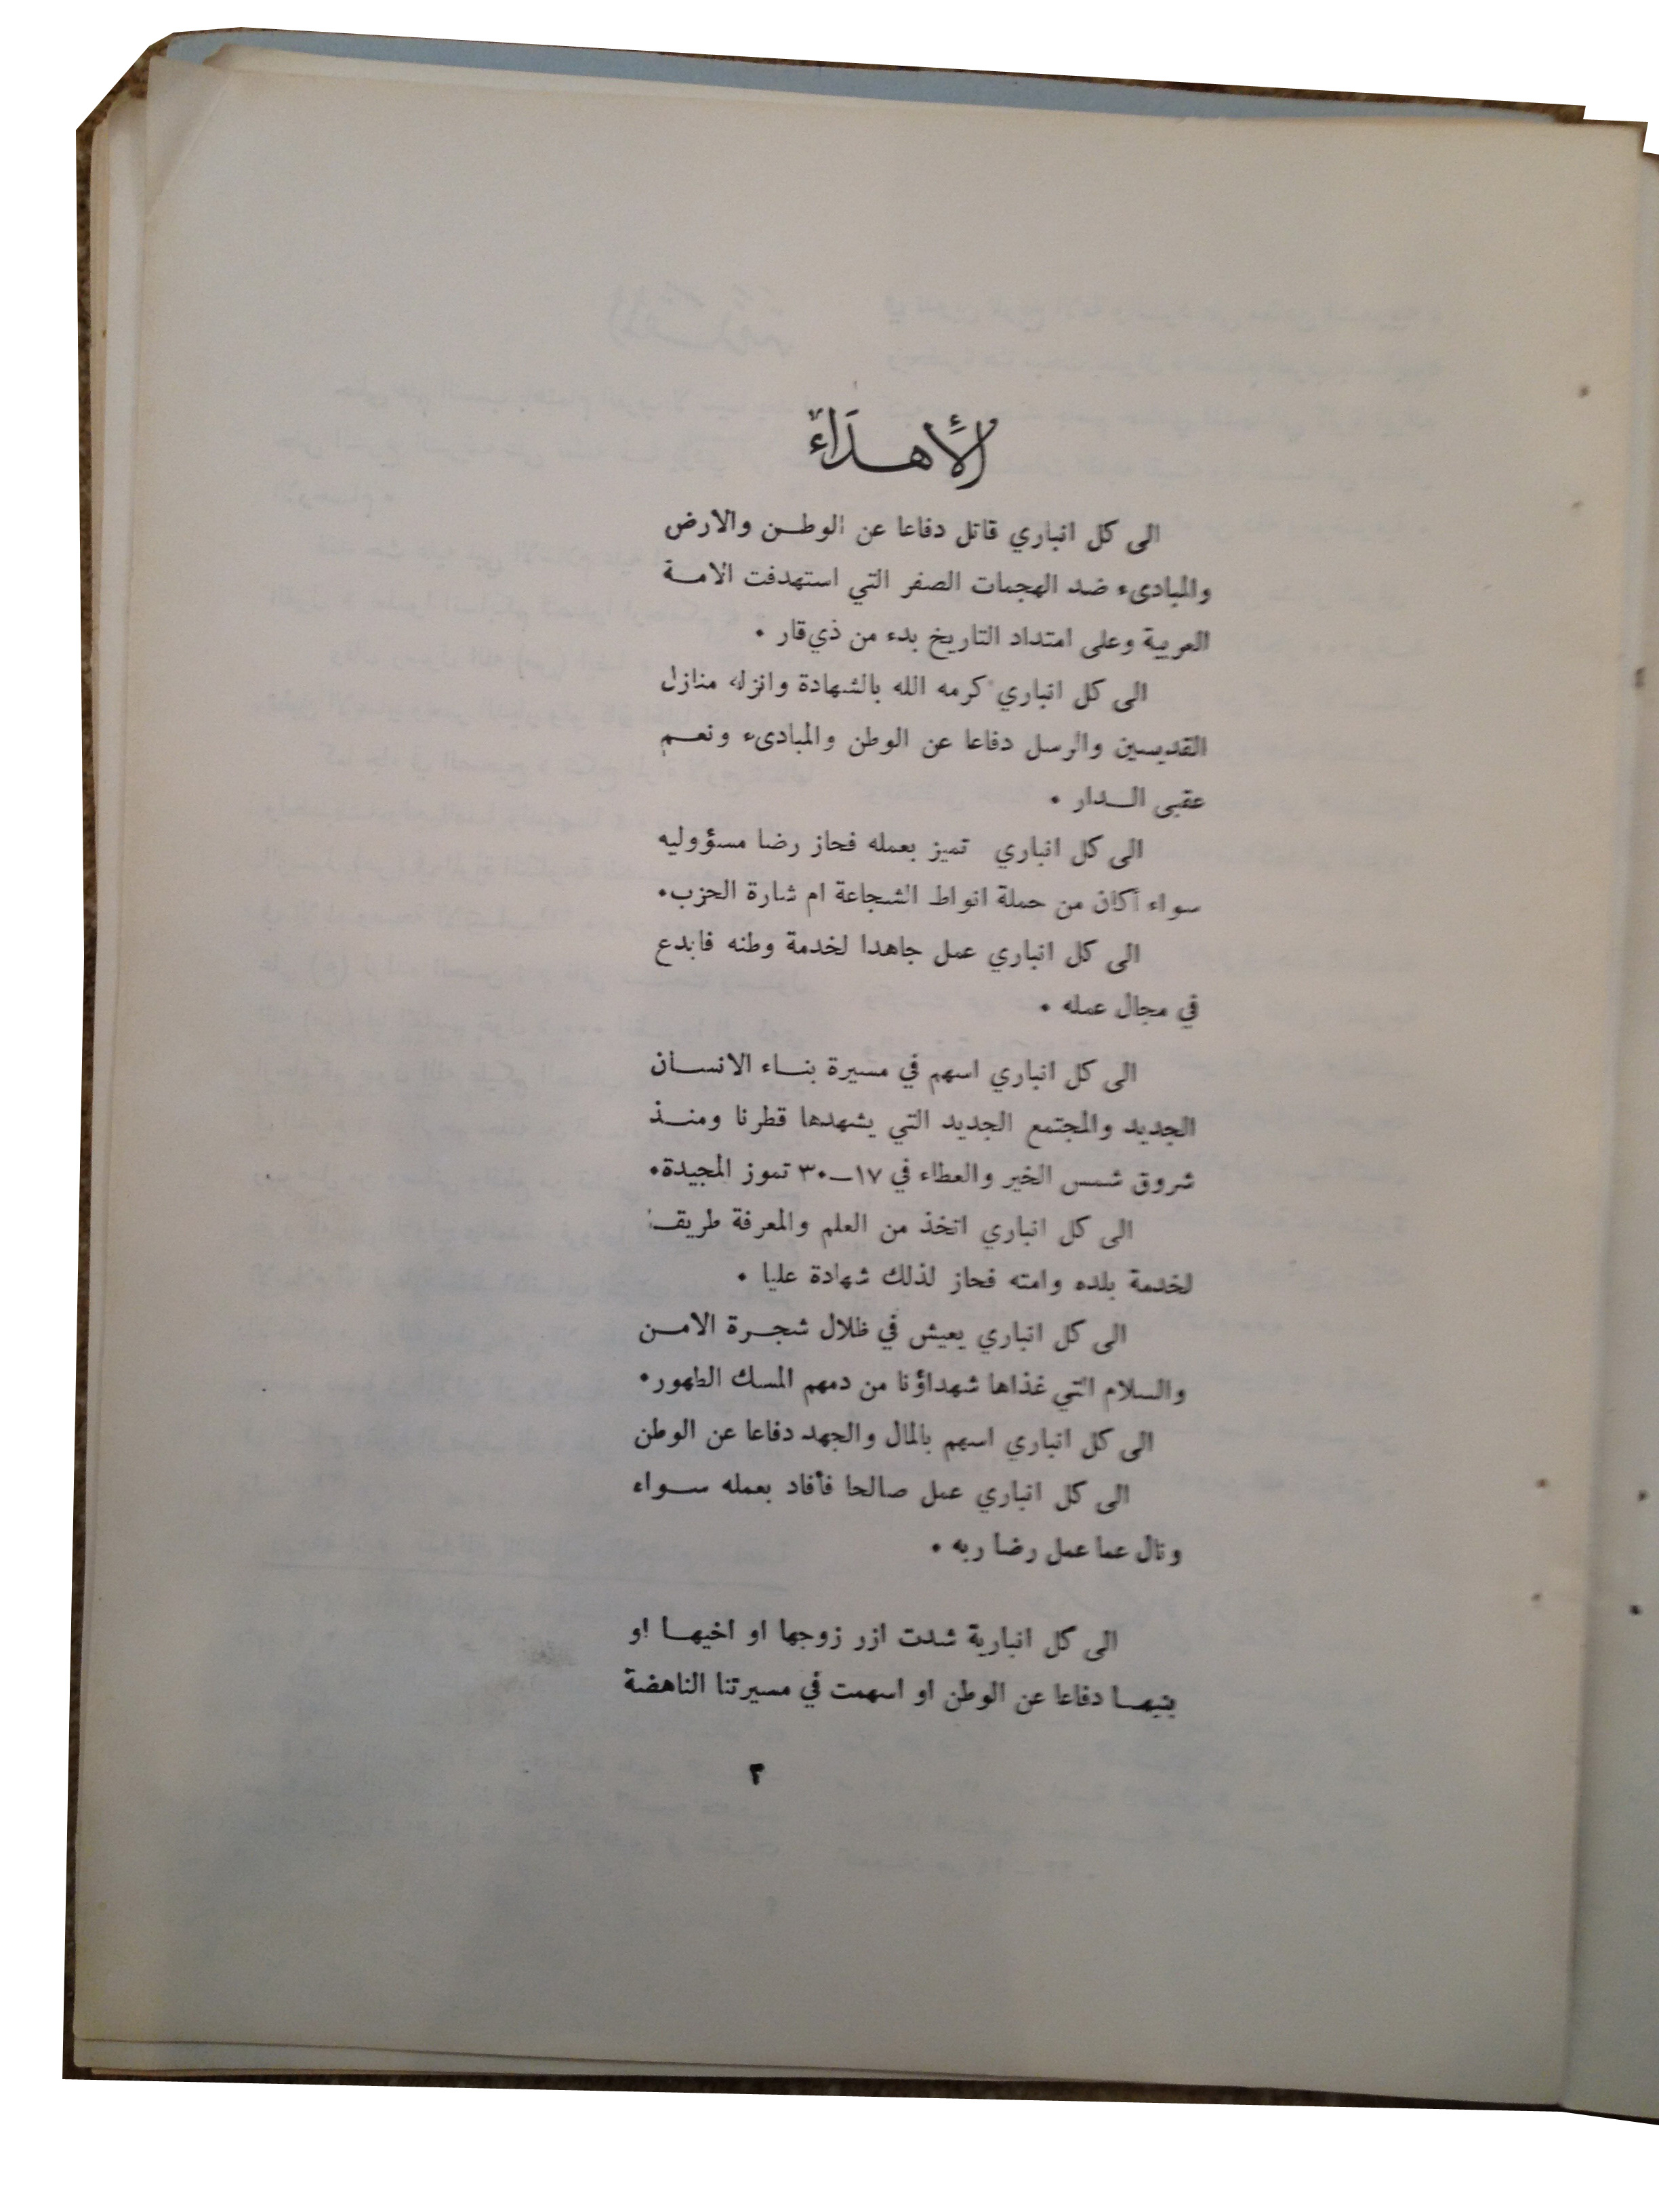 الأهداء
الى كل انباري قاتل دفاعا عن الوطــن والارض
والمبادىء ضد الهجمات الصفر التي استهدفت الامــة
العربية وعلى امتداد التاريخ بدء من ذي قار ٠
الى كل انباري كرمه الله بالشهادة وانزله منازل
القديسين والرسل دفاعا عن الوطن والمبادىء ونعــم
عقبى الــدار ٠
الى كل انباري تميز بعمله فحاز رضا مسؤوليه
سواء أكان من حملة انواط الشجاعة ام شارة الحزب٠
الى كل انباري عمل جاهدا لخدمة وطنه فابدع
في مجال عمله ٠
الى كل انباري اسهم في مسيرة بنــاء الانســان
الجديد والمجتمع الجديد التي يشهدها قطرنا ومنــذ
شروق شمس الخير والعطاء في ١٧ــ٣٠ تموز المجيدة٠
الى كل انباري اتخذ من العلم والمعرفة طريقــا
لخدمة بلده وامته فحاز لذلك شهادة عليا ٠
الى كل انباري يعيش في ظلال شجــرة الامــن
والسلام التي غذاها شهداؤنا من دمهم المسك الطهور٠
الى كل انباري اسهم بالمال والجهد دفاعا عن الوطن
الى كل انباري عمل صالحا فأفاد بعمله ســواء
ونال عما عمل رضا ربه ٠
الى كل انبارية شدت ازر زوجها او اخيهــا او
بنيهــا دفاعا عن الوطن او اسهمت في مسيرتنا الناهضة
٣